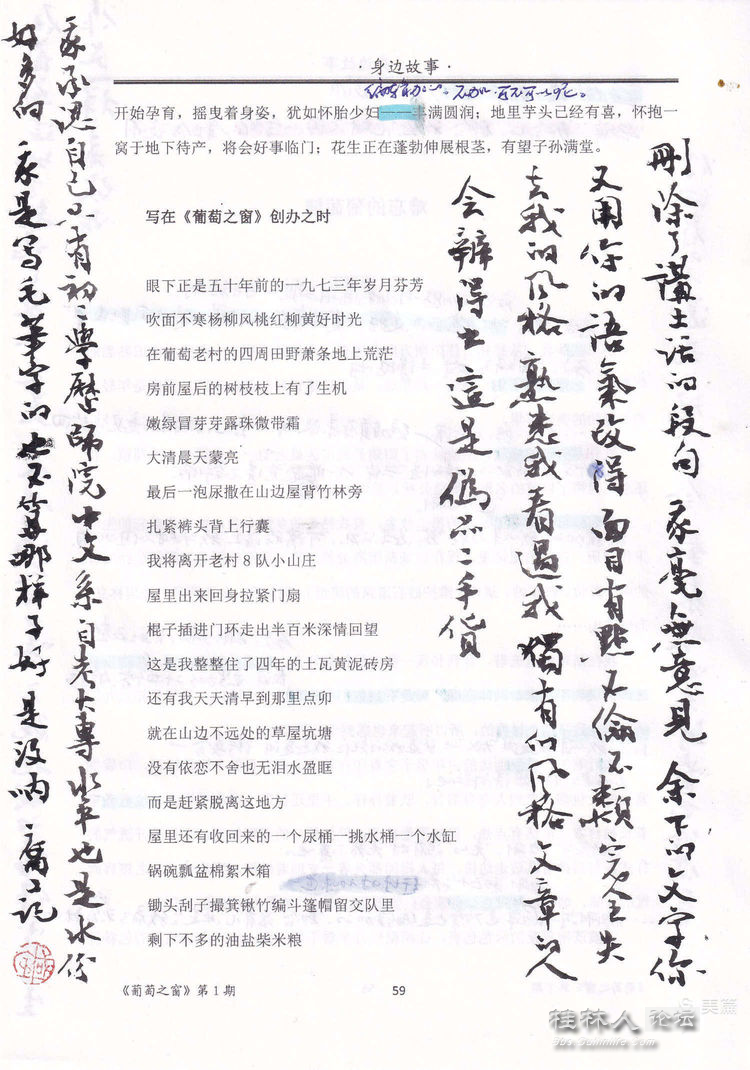 ·身边故事·
开始孕育，摇曳着身姿，犹如怀胎少妇——丰满圆润；地里芋头已经有喜，怀抱一
窝于地下待产，将会好事临门；花生正在蓬勃伸展根茎，有望子孙满堂。
写在《葡萄之窗》创办之时
眼下正是五十年前的一九七三年岁月芬芳
吹面不寒杨柳风桃红柳黄好时光
在葡萄老村的四周田野萧条地上荒茫
房前屋后的树枝枝上有了生机
嫩绿冒芽芽露珠微带霜
大清晨天蒙亮
最后一泡尿撒在山边屋背竹林旁
扎紧裤头背上行囊
我将离开老村8队小山庄
屋里出来回身拉紧门扇
棍子插进门环走出半百米深情回望
这是我整整住了四年的土瓦黄泥砖房
还有我天天清早到那里点卯
就在山边不远处的草屋坑塘
没有依恋不舍也无泪水盈眶
而是赶紧脱离这地方
屋里还有收回来的一个尿桶一挑水桶一个水缸
锅碗瓢盆棉絮木箱
锄头刮子撮箕锹竹编斗篷帽留交队里
剩下不多的油盐柴米粮
刪除了講土话的段句 我毫無意見 余下的文字你
又用你的語氣改得面目有點不倫不類 完全失
去我的风格 熟悉我看過我獨有的风格文章的人
会辨得出這是偽只二手貨
我承認自己只有初中學歷 师院中文系自考大專水平也是水份
好多的 我是写毛筆字的 也不算那样子好 是没呐 庸工記
《葡萄之窗》第1期
59
美篇
桂林人论坛
bbs.guilinlife.com